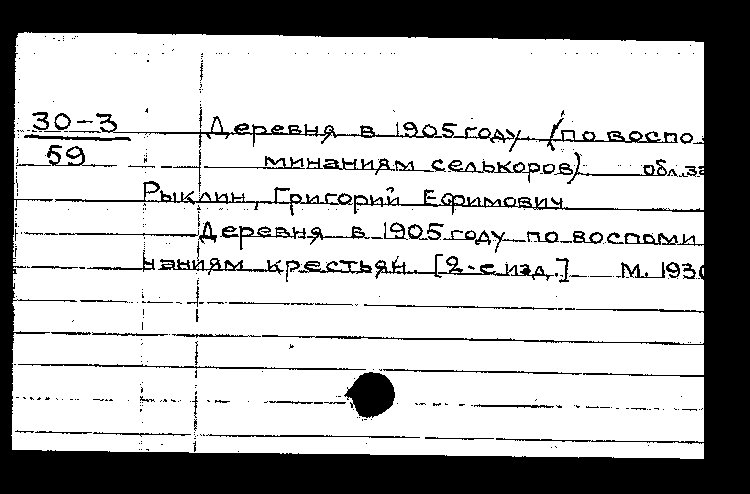 30-3
59
Деревня в 1905 году (по воспо-
минаниям селькоров) обл. за
Рыклин, Григорий Ефимович
Деревня в 1905 году по воспоми
наниям крестьян. [2-е изд.] М. 1930